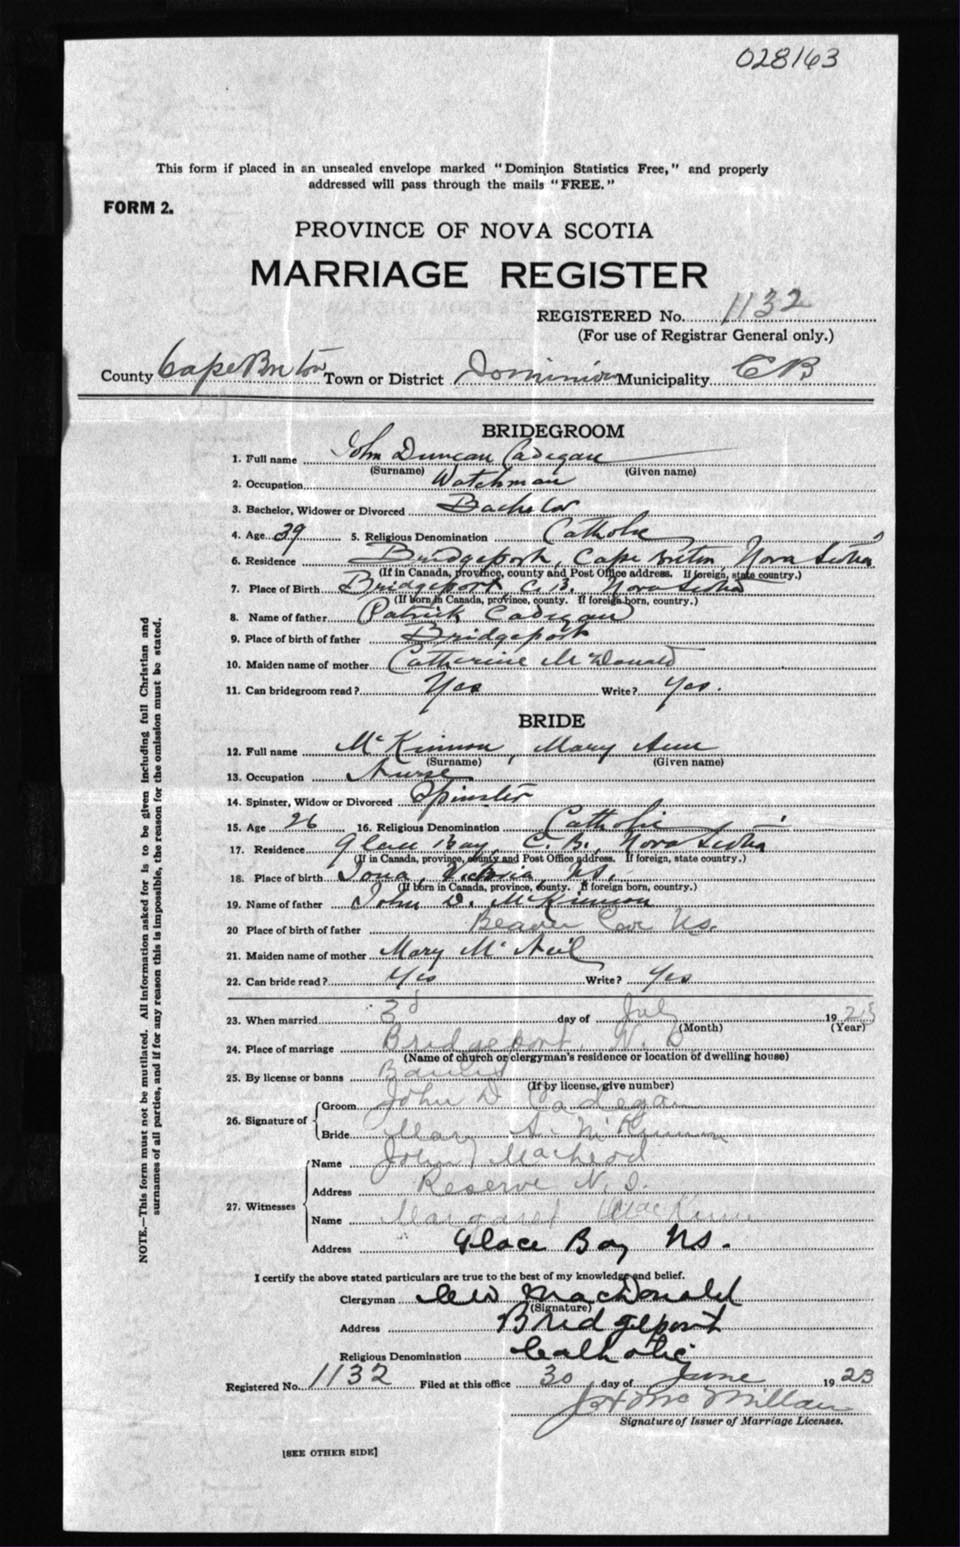 028163
This form if placed in an unsealed envelope marked "Dominion Statistics Free," and properly
addressed will pass through the mails "FREE."
FORM 2.
PROVINCE OF NOVA SCOTIA
MARRIAGE REGISTER
REGISTERED No. 1132
(For use of Registrar General only.)
County Cape Breton Town or District Dominion Municipality C B
BRIDEGROOM
1. Full name John Duncan Cadegan
(Surname) (Given name)
2. Occupation Watchman
3. Bachelor, Widower or Divorced Bachelor
4. Age 39 5. Religious Denomination Catholic
6. Residence Bridgeport, Cape Breton, Nova Scotia
(If in Canada, province, county and Post Office address. If foreign, state country.)
7. Place of Birth Bridgeport C.B. Nova Scotia
(If born in Canada, province, county. If foreign born, country.)
8. Name of father Patrick Cadegan
9. Place of birth of father Bridgeport
10. Maiden name of mother Catherine McDonald
11. Can bridegroom read? Yes Write? Yes.
BRIDE
12. Full name McKinnon, Mary Ann
(Surname) (Given name)
13. Occupation Nurse
14. Spinster, Widow or Divorced Spinster
15. Age 26 16. Religious Denomination Catholic
17. Residence Glace Bay, C. B., Nova Scotia
(If in Canada, province, county and Post Office address. If foreign, state country.)
18. Place of birth Iona, Victoria NS.
(If born in Canada, province, county. If foreign born, country.)
19. Name of father John D. McKinnon
20 Place of birth of father Beaver Cove NS.
21. Maiden name of mother Mary McNeil
22. Can bride read? Yes Write? Yes
23. When married 3d day of July 1923
(Month) (Year)
24. Place of marriage Bridgeport, N. S
(Name of church or clergyman's residence or location of dwelling house)
25. By license or banns Banns
(If by license, give number)
26. Signature of Groom John D Cadegan
Bride Mary A. McKinnon
27. Witnesses Name John J MacLeod
Address Reserve N. S.
Name Margaret MacKinnon
Address Glace Bay NS.
I certify the above stated particulars are true to the best of my knowledge and belief.
Clergyman MacDonald
(Signature)
Address Bridgeport
Religious Denomination Catholic
Registered No. 1132 Filed at this office 30 day of June 1923
McMillan
Signature of Issuer of Marriage Licenses.
[SEE OTHER SIDE]
NOTE.—This form must not be mutilated. All information asked for is to be given including full Christian and
surnames of all parties, and if for any reason this is impossible, the reason for the omission must be stated.